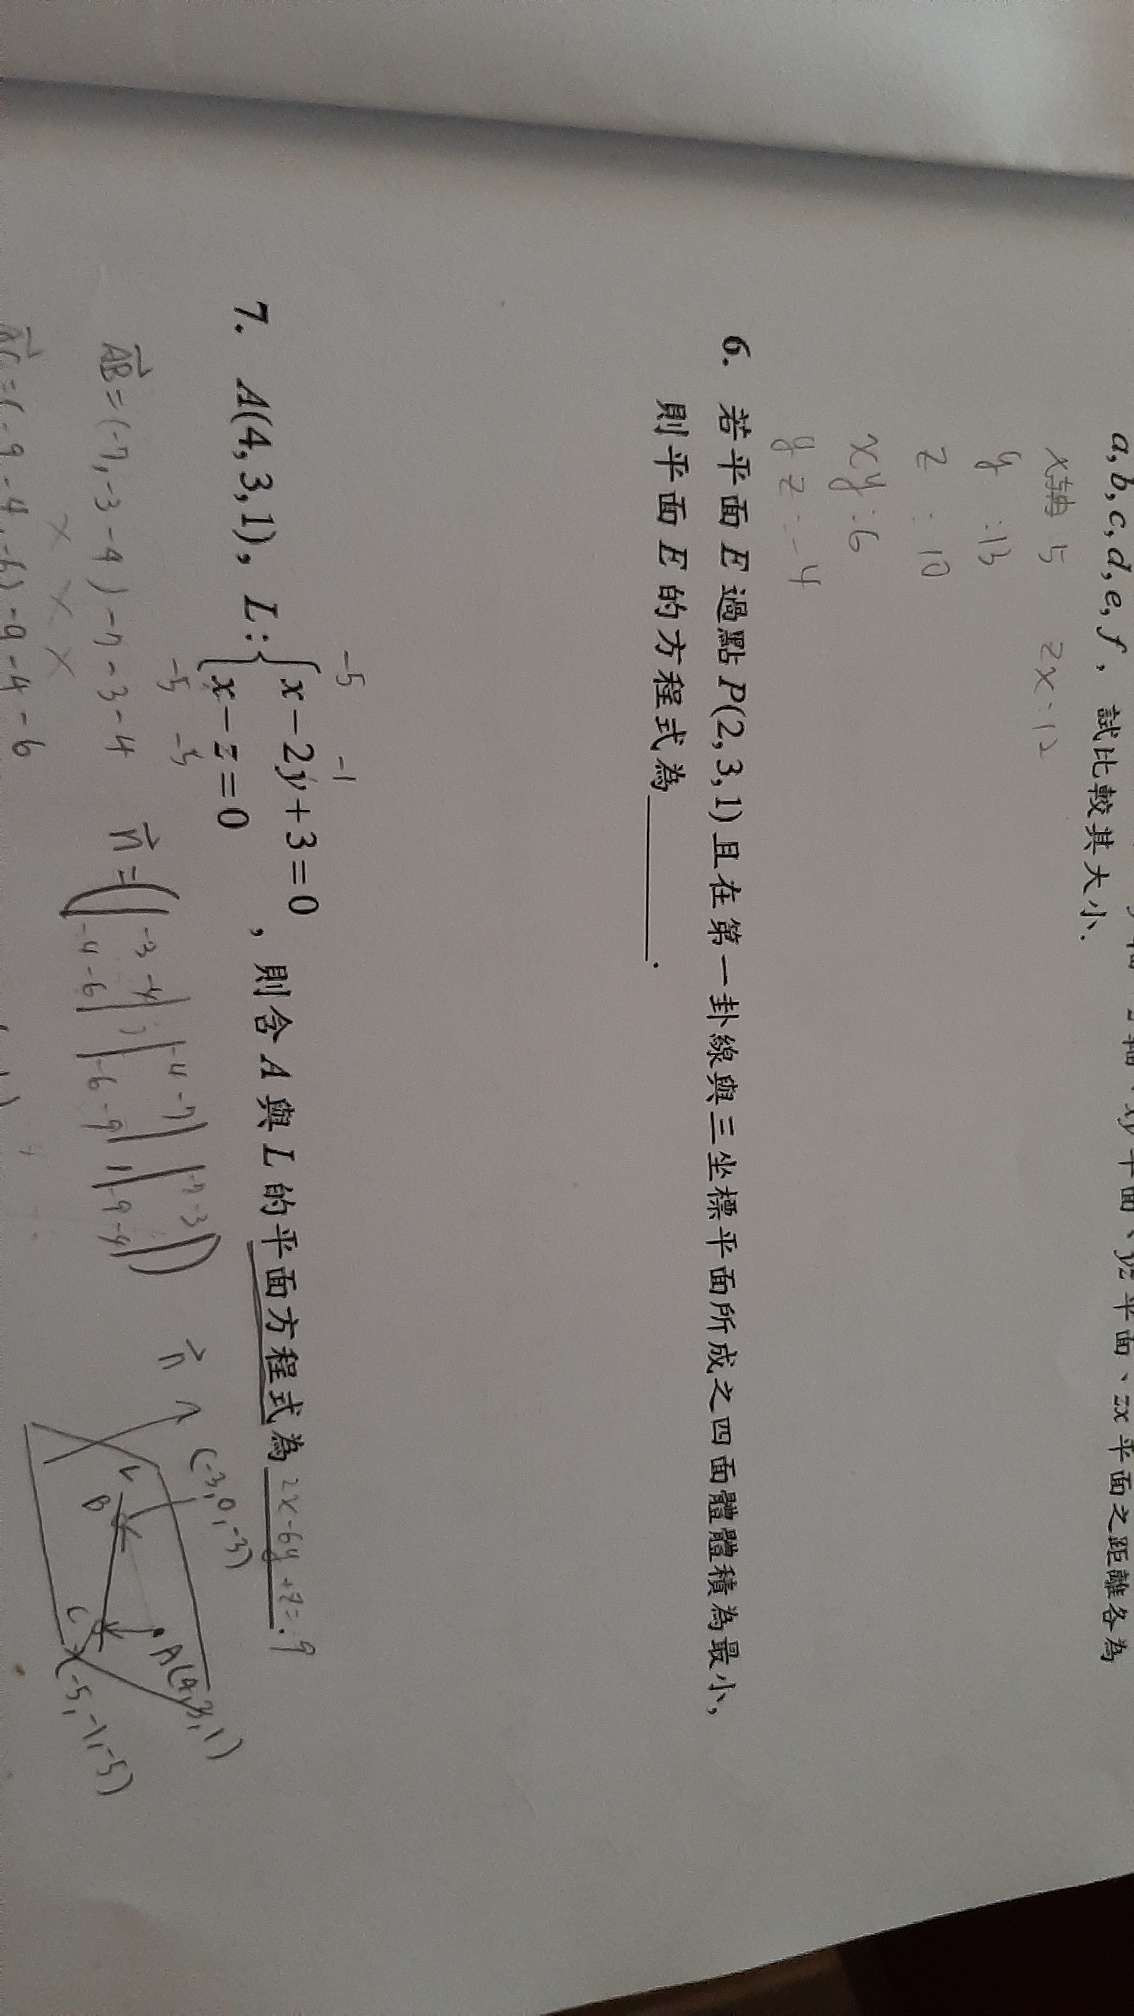 平面、yz平面、zx平面之距離各為
a, b, c, d, e, f，試比較其大小.
x轴 5 zx:12
y :13
z :10
xy:6
yz:-4
6. 若平面E過點P(2,3,1)且在第一卦線與三坐標平面所成之四面體體積為最小，
則平面E的方程式為________.
-5 -1
7. A(4,3,1)，L:{x-2y+3=0 x-z=0，則含A與L的平面方程式為2x-6y+z=-9
-5 -5
AB=(-7,-3-4) -7-3-4
n=(|-3 -4 -4 -6|,|-4 -7 -6 -9|,|-7 -3 -9 -4|)
AC=(-9-4,-6) -9-4-6
n
(-3,0,-3)
L
B
C
A(4,3,1)
(-5,-1,-5)